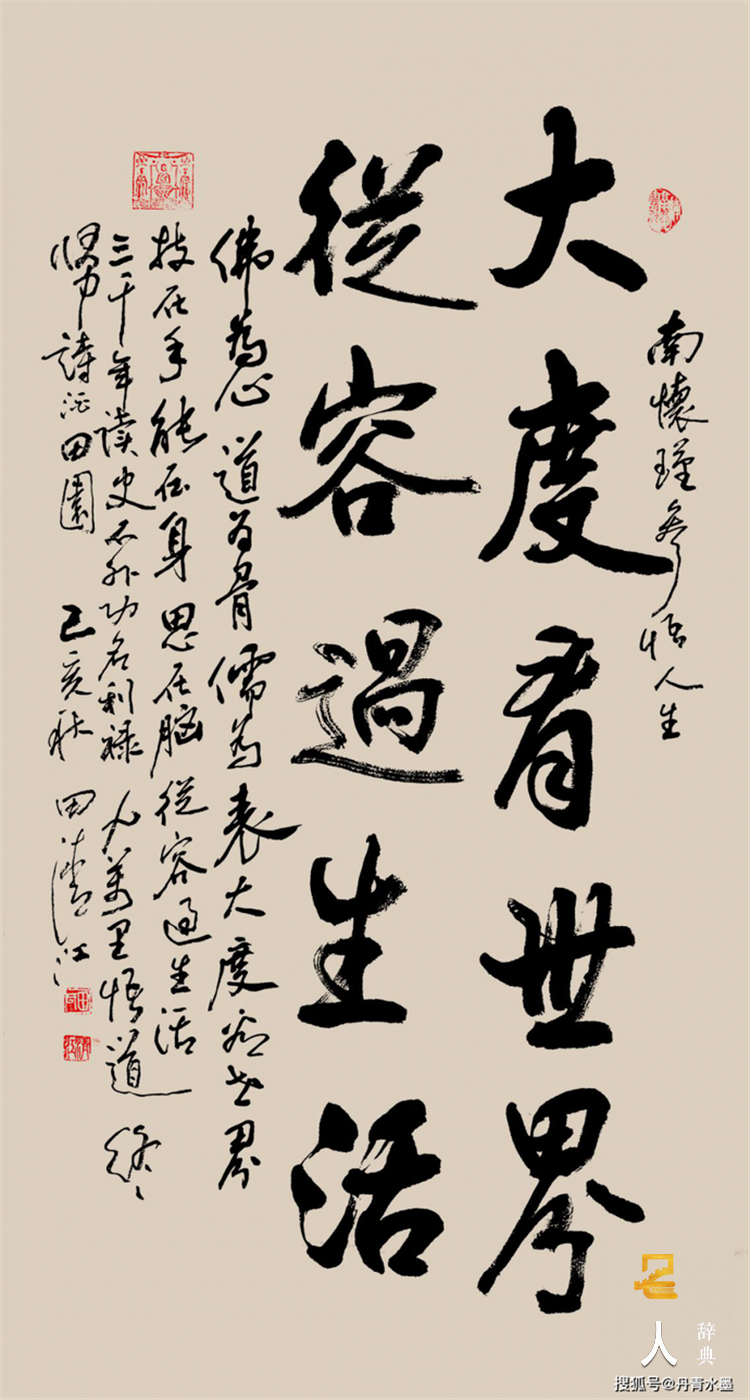 南懷瑾參悟人生
大度看世界
從容過生活
佛為心道為骨儒為表大度看世界
技在手能在身思在脑從容過生活
三千年读史不外功名利祿九萬里悟道終
歸詩酒田園 己亥秋 田江
人
辞典
搜狐号@丹青水墨